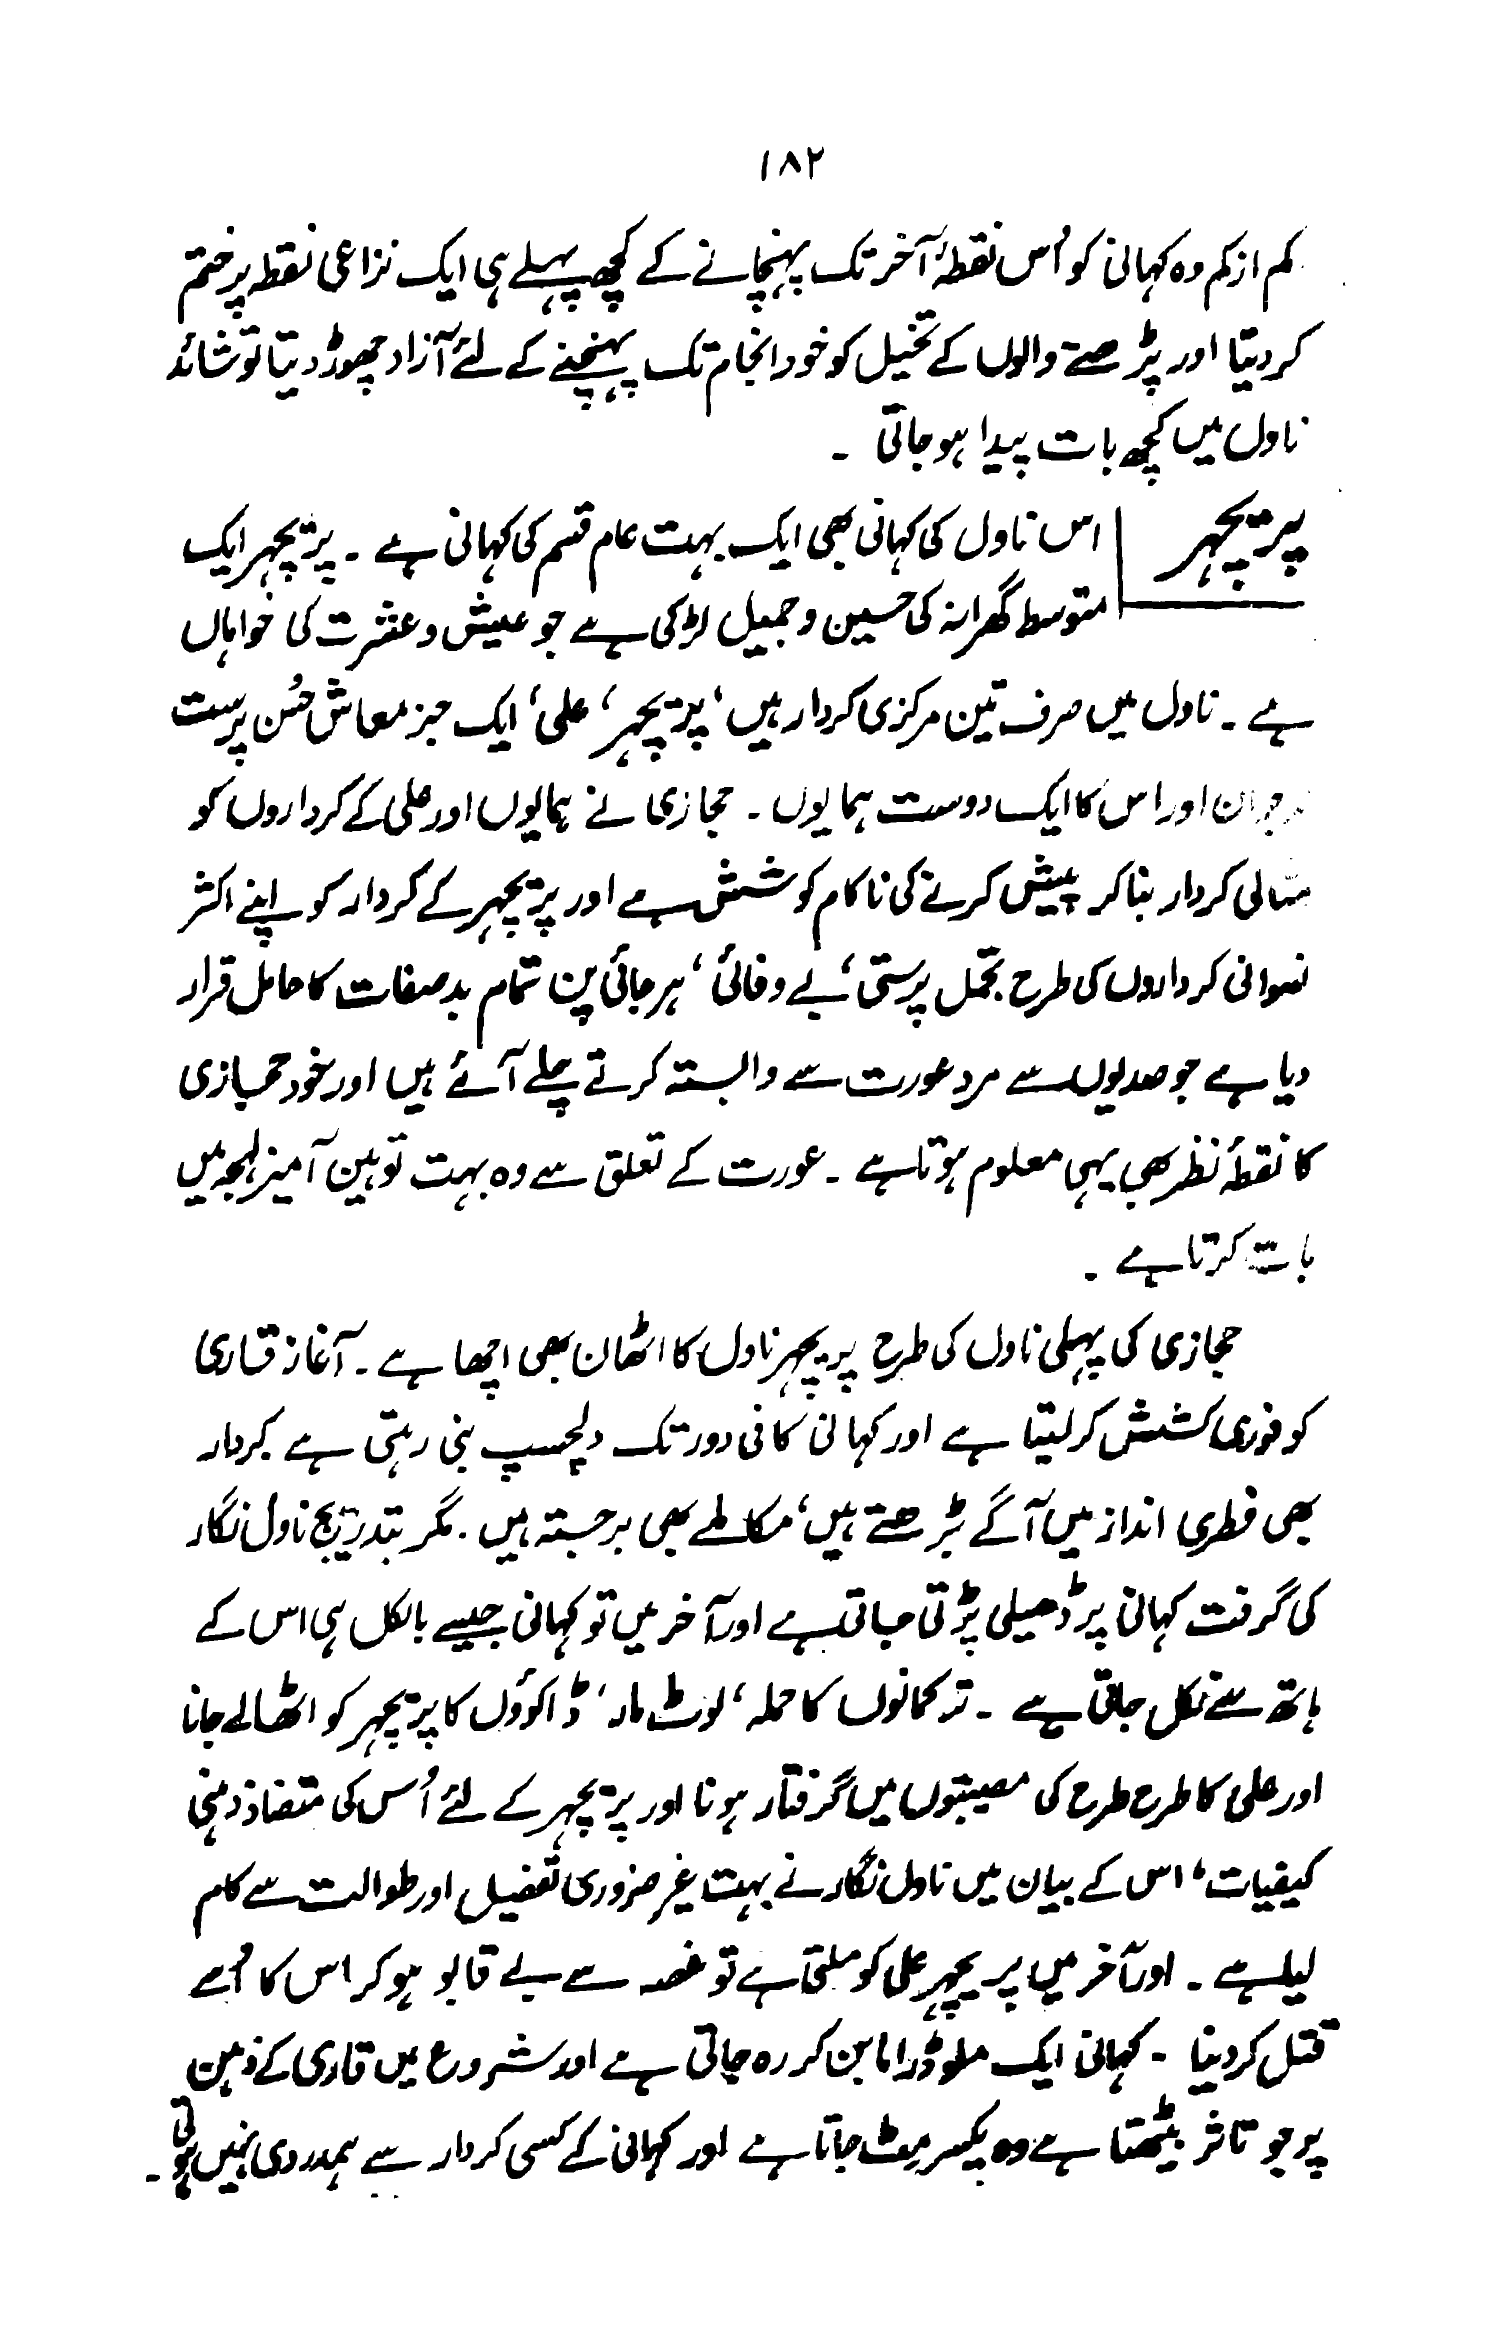 ۱۸۲
کم از کم وہ کہانی کو اُس نقطۂ آخر تک پہنچانے کے کچھ پہلے ہی ایک نزاعی نقطہ پر ختم
کر دیتا اور پڑھنے والوں کے تخیل کو خود انجام تک پہنچنے کے لئے آزاد چھوڑ دیتا تو شائد
ناول میں کچھ بات پیدا ہو جاتی ۔
پریچہر
اس ناول کی کہانی بھی ایک بہت عام قسم کی کہانی ہے ۔ پریچہر ایک
متوسط گھرانہ کی حسین و جمیل لڑکی ہے جو عیش و عشرت کی خواہاں
ہے ۔ ناول میں صرف تین مرکزی کردار ہیں ‘ پریچہر ‘ علی ‘ ایک جز معاش حُسن پرست
اور اس کا ایک دوست ہمایوں ۔ حجازی نے ہمایوں اور علی کے کرداروں کو
مثالی کردار بنا کر پیش کرنے کی ناکام کوشش ہے اور پریچہر کے کردار کو اپنے اکثر
نسوانی کرداروں کی طرح تجمل پرستی ‘ بے وفائی ‘ ہرجائی پن تمام بد صفات کا حامل قرار
دیا ہے جو صدیوں سے مرد عورت سے وابستہ کرتے چلے آئے ہیں اور خود حجازی
کا نقطۂ نظر بھی یہی معلوم ہوتا ہے ۔ عورت کے تعلق سے وہ بہت توہین آمیز لہجہ میں
بات کرتا ہے ۔
حجازی کی پہلی ناول کی طرح پریچہر ناول کا اٹھان بھی اچھا ہے ۔ آغاز قاری
کو فوری کشش کر لیتا ہے اور کہانی کافی دور تک دلچسپ بنی رہتی ہے کردار
بھی فطری انداز میں آگے بڑھتے ہیں ‘ مکالمے بھی برجستہ ہیں ۔ مگر بتدریج ناول نگار
کی گرفت کہانی پر ڈھیلی پڑتی جاتی ہے اور آخر میں تو کہانی جیسے بالکل ہی اس کے
ہاتھ سے نکل جاتی ہے ۔ ترکمانوں کا حملہ ‘ لوٹ مار ‘ ڈاکوؤں کا پریچہر کو اٹھا لے جانا
اور علی کا طرح طرح کی مصیبتوں میں گرفتار ہونا اور پریچہر کے لئے اُس کی متضاد ذہنی
کیفیات ‘ اس کے بیان میں ناول نگار نے بہت غیر ضروری تفصیل اور طوالت سے کام
لیا ہے ۔ اور آخر میں پریچہر علی کو ملتی ہے تو غصہ سے بے قابو ہو کر اس کا اُسے
قتل کر دینا ۔ کہانی ایک ملوڈراما بن کر رہ جاتی ہے اور شروع میں قاری کے ذہن
پر جو تاثر بیٹھتا ہے وہ یکسر مٹ جاتا ہے اور کہانی کے کسی کردار سے ہمدردی نہیں ہوتی ۔